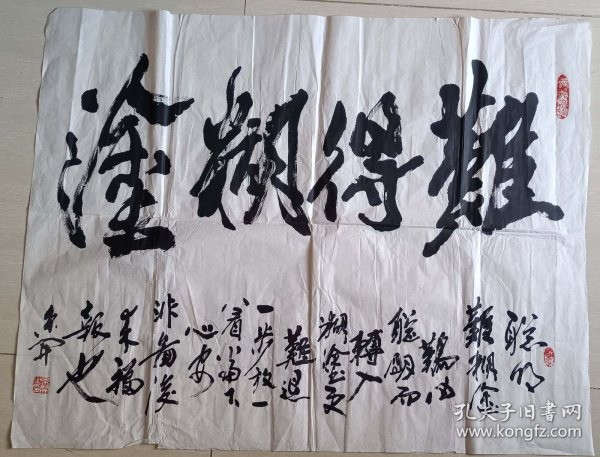 難得糊塗
聪明
難糊塗
難由
聪明而
轉入
糊塗更
難退
一步放一
着當下
心安
非啚後
来福
報也
孔夫子旧书网
www.kongfz.com